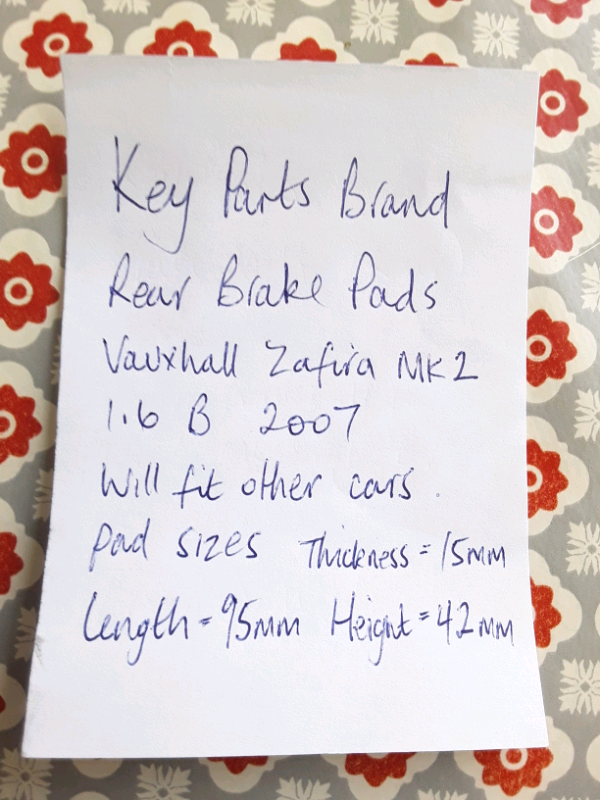 Key Parts Brand
Rear Brake Pads
Vauxhall Zafira MK2
1.6 B 2007
Will fit other cars.
pad sizes Thickness = 15mm
Length = 95mm Height = 42mm